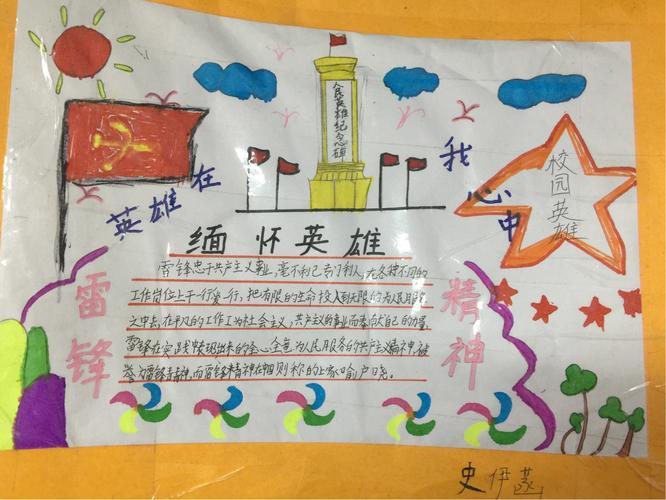 英雄在
我心中
英雄纪念碑
校园英雄
缅怀英雄
雷锋
精神
雷锋忠于共产主义事业,毫不利己专门利人,在各种不同的
工作岗位上干一行爱一行,把有限的生命投入到无限的为人民服务
之中去,在平凡的工作工为社会主义,共产主义的事业而奉献自己的力量,
雷锋在实践中表现出来的全心全意为人民服务的共产主义精神,被
誉为雷锋精神,而雷锋精神在中国则称的上家喻户晓。
史伊